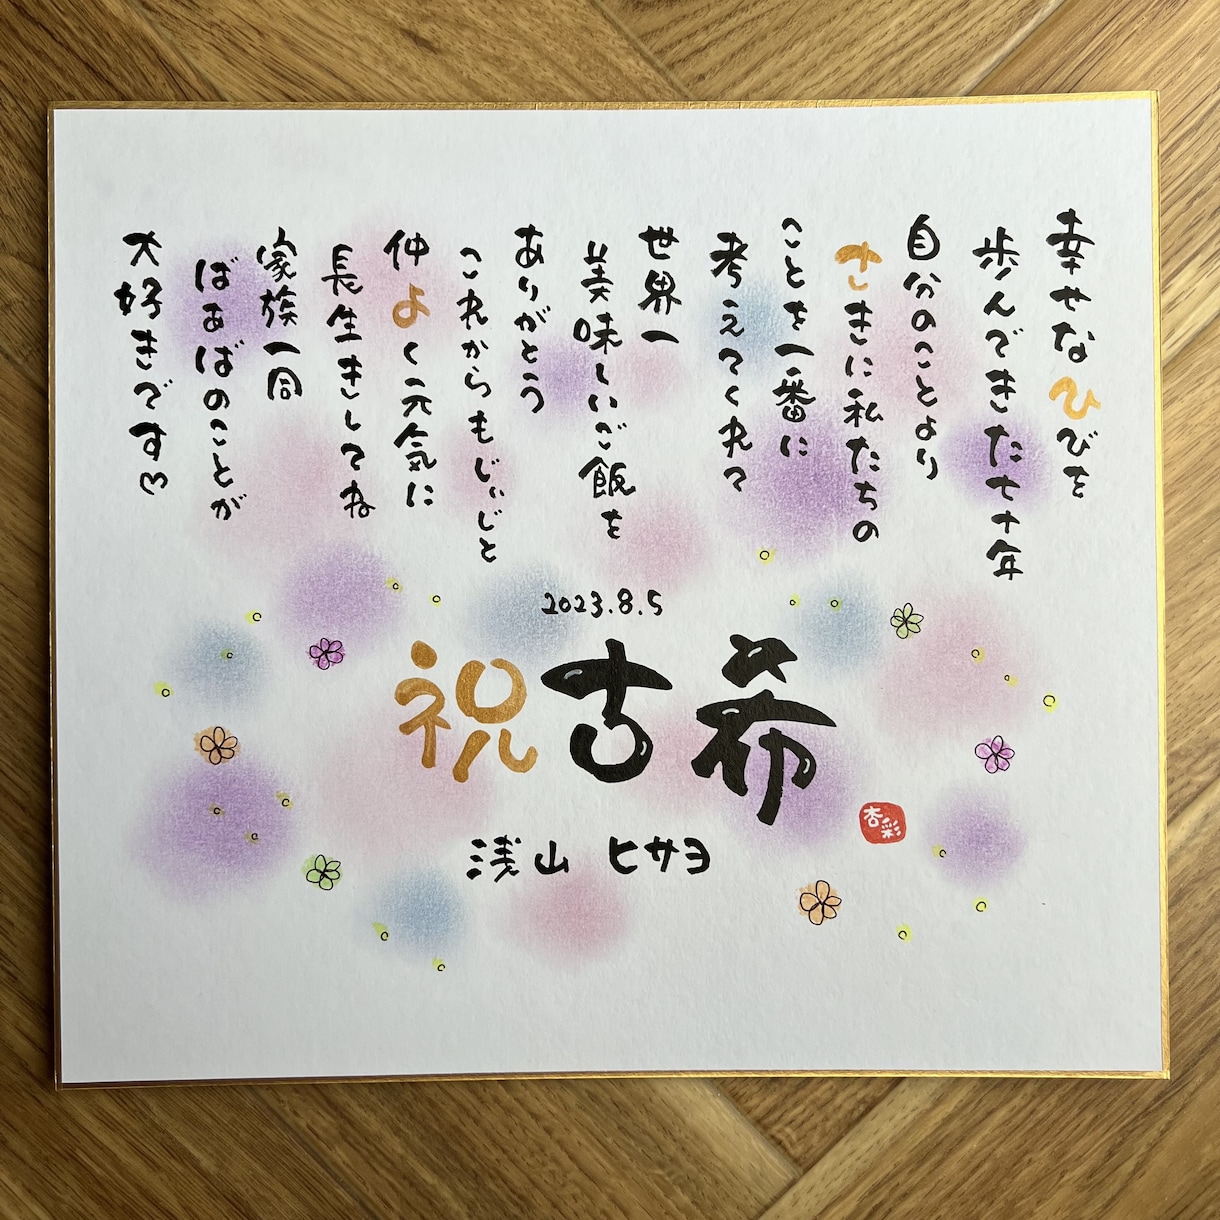 幸せなひびを
歩んできた七十年
自分のことより
さきに私たちの
ことを一番に
考えてくれて
世界一
美味しいご飯を
ありがとう
これからもじぃじと
仲よく元気に
長生きしてね
家族一同
ばぁばのことが
大好きです♡
2023.8.5
祝古希
杏彩
浅山 ヒサヨ